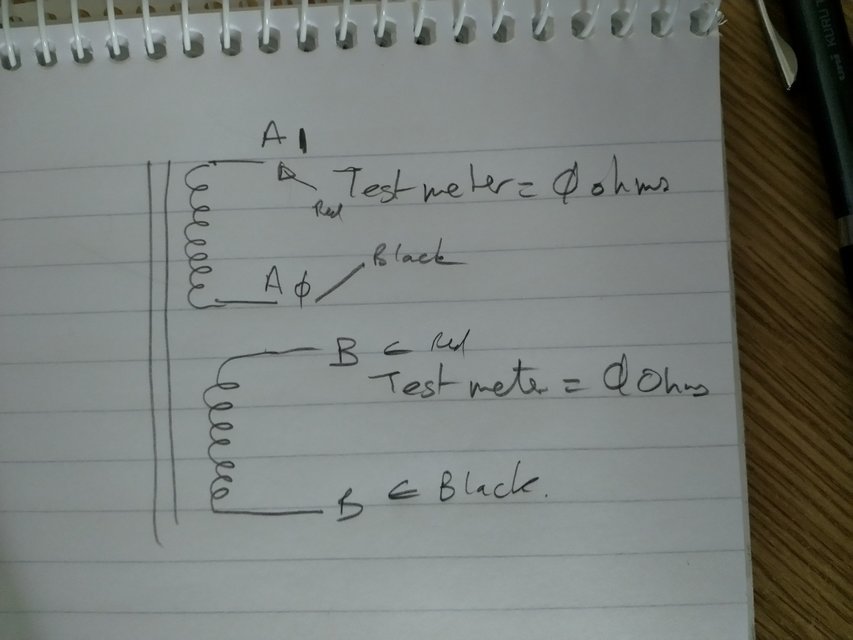 A1
Test meter = ϕ ohms
Red
Black
A ϕ
B ← Red
Test meter = ϕ Ohms
B ← Black.